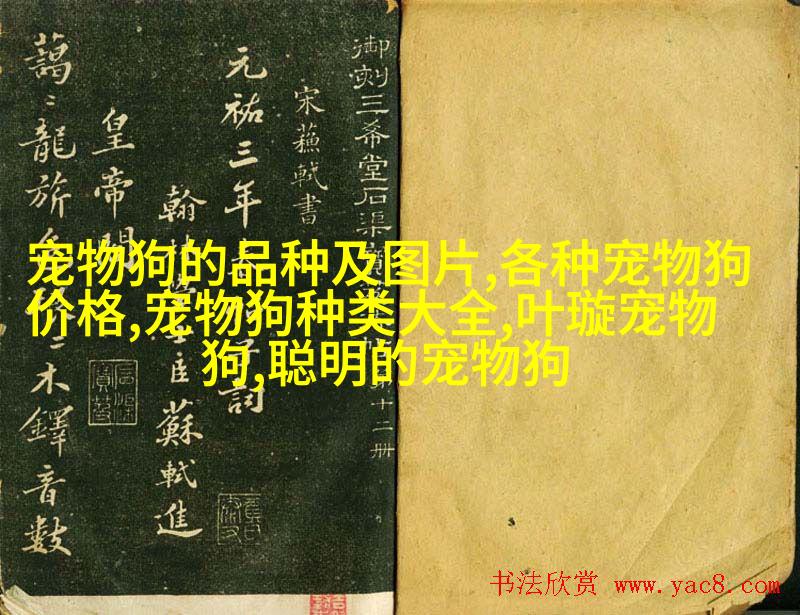 御刻三希堂石渠寶
第十二册
宋蘇軾書
元祐三年春帖子詞
翰林學士臣蘇軾進
皇帝閣
藹〻龍旂
木鐸音數
宠物狗的品种及图片,各种宠物狗
价格,宠物狗种类大全,叶璇宠物
狗,聪明的宠物狗
书法欣赏 www.yac8.com